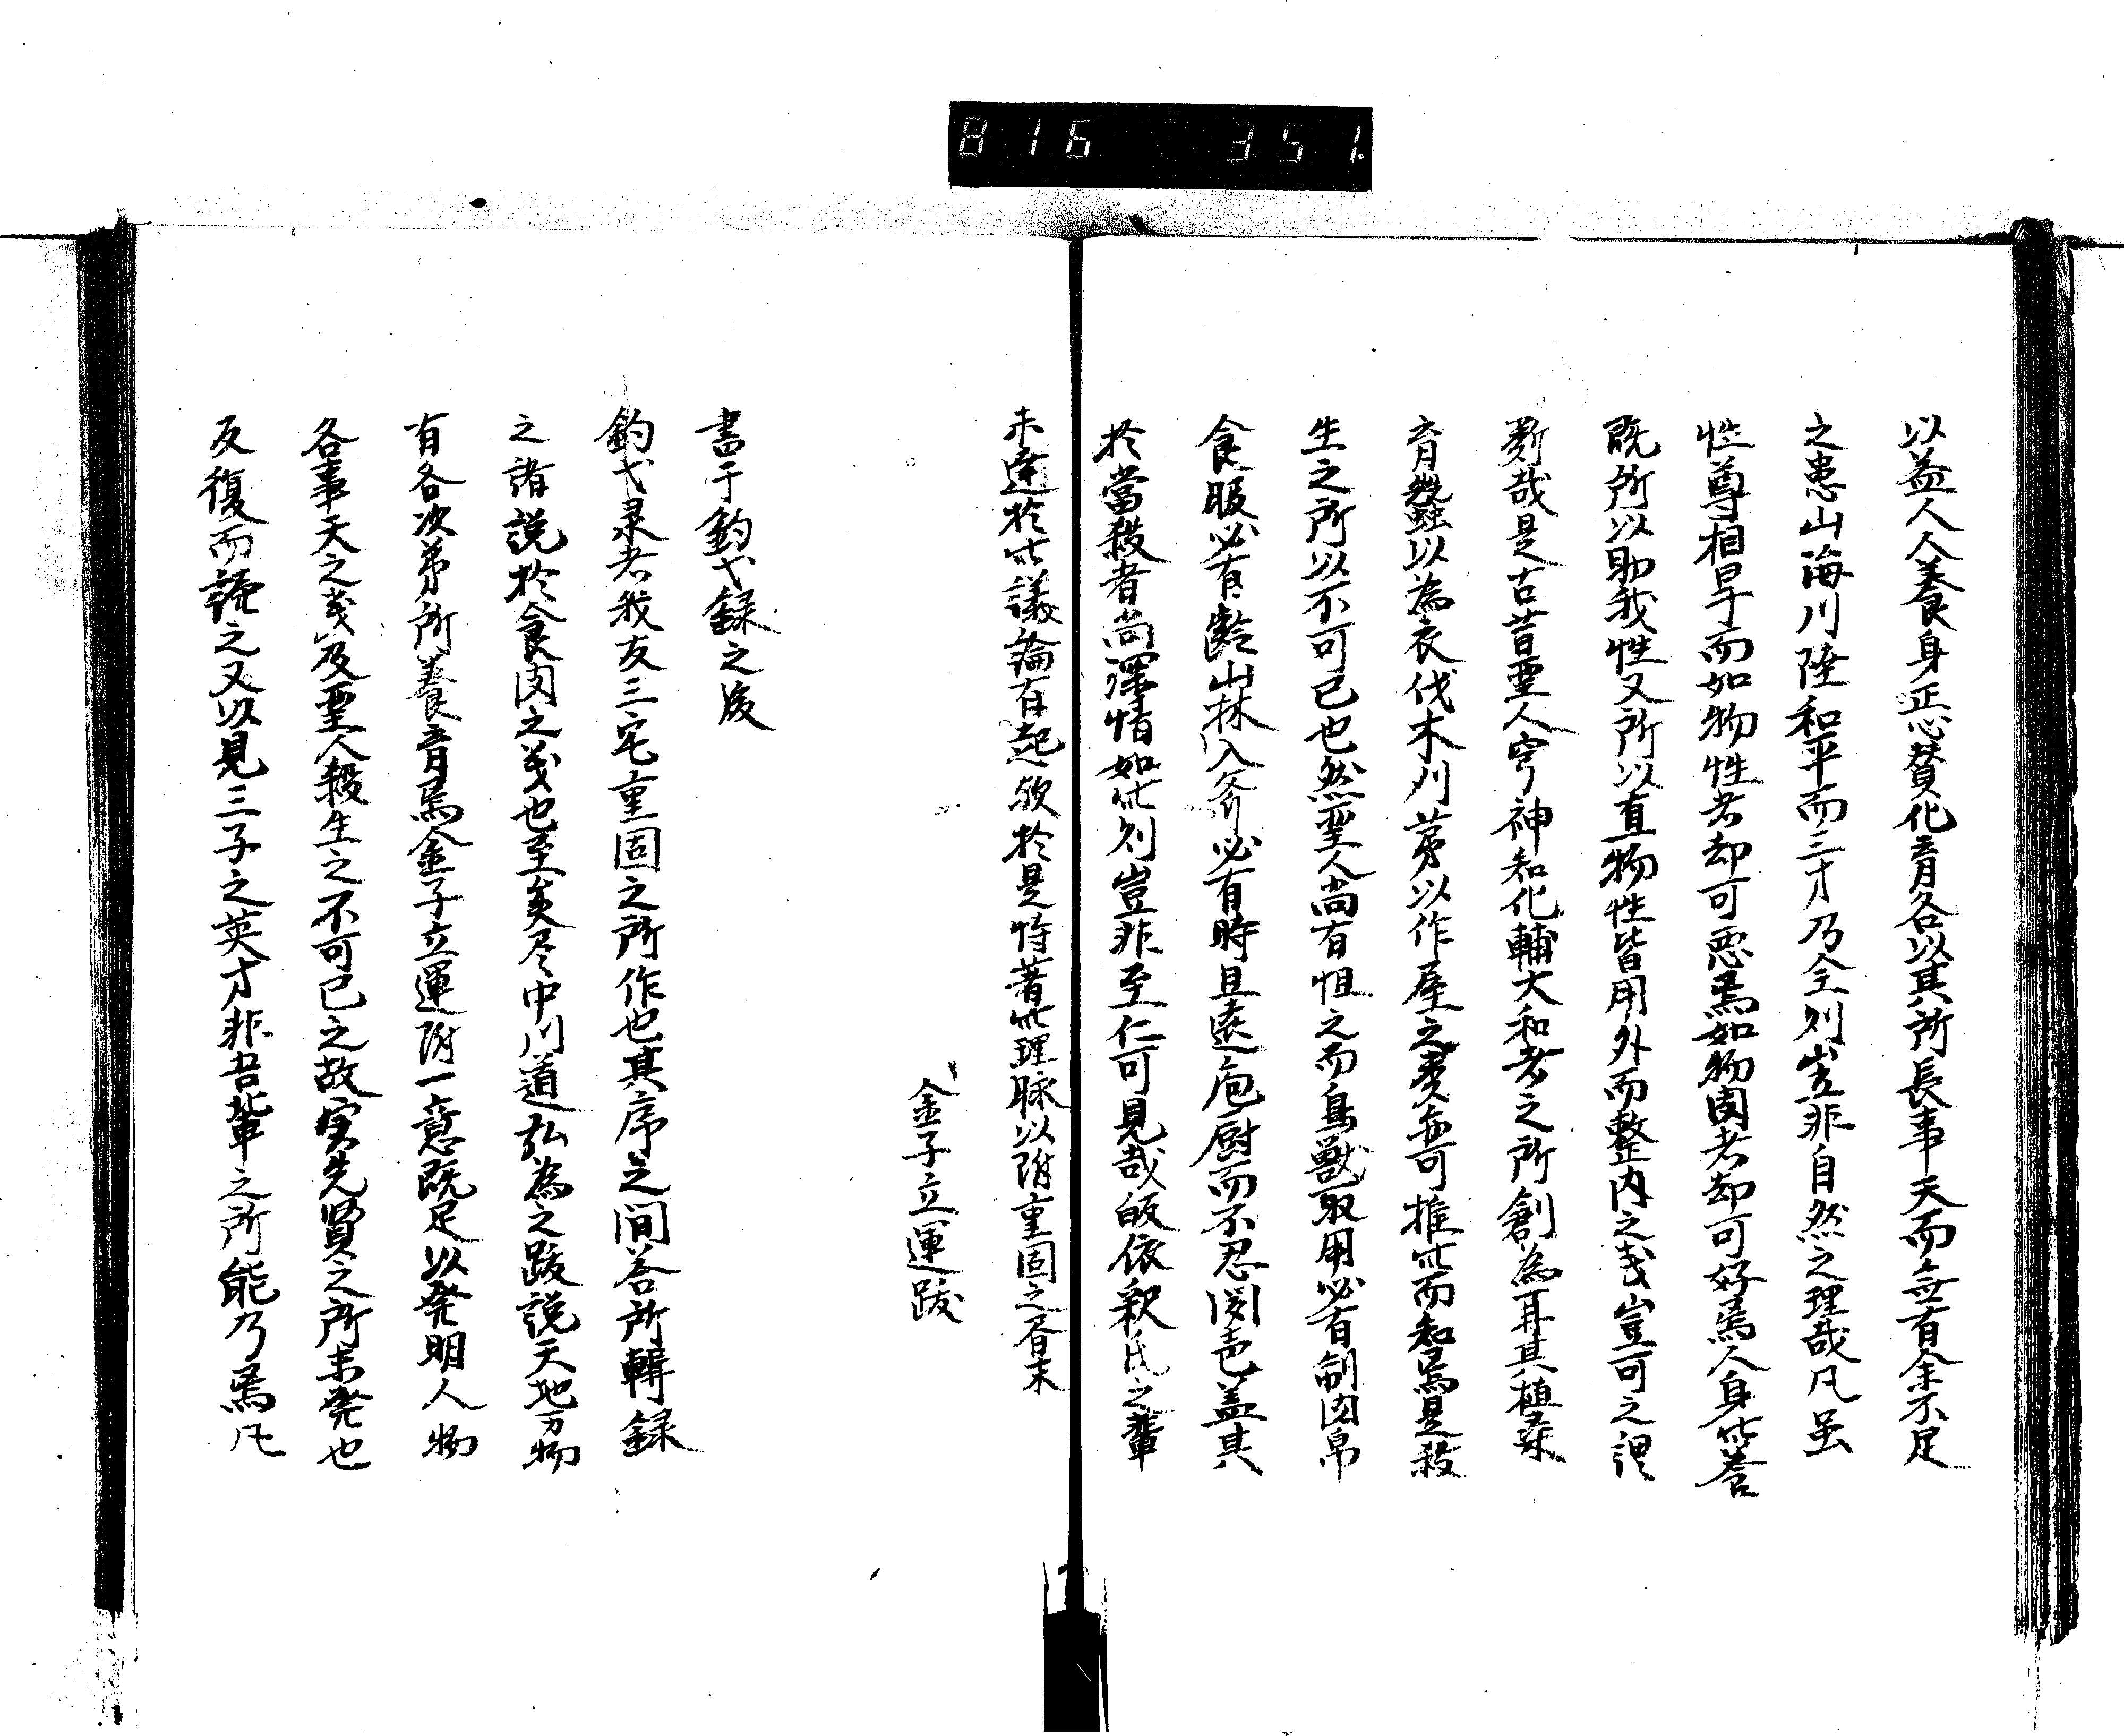 816 351.
以益人人養身正忘賛化育各以其所長事天而無有余不足
之患山海川陸和平而三才乃全則豈非自然之理哉凡虽
性尊相早而如物性者却可悪焉如物肉者却可好焉人身此等
既所以助我性又所以直物性皆用外而整内之義豈可之謂
斯哉是古昔聖人窮神知化輔大和者之所創為耳其植桑
育蚕以為衣伐木刈茅以作屋之類亦可推此而知焉是殺
生之所以不可已也然聖人尚有怛之而鳥獣取用必有制肉帛
食服必有齢山林入斧必有時且遠庖厨而不忍聞声蓋其
於當殺者尚深惜如此則豈非至仁可見哉皈依釈氏之輩
未達於此議論有起欤於是特著此理脉以附重固之巻末
金子立運跋
書于釣弋録之後
釣弋录者我友三宅重固之所作也其序之間答所輯録
之諸説於食肉之義也至矣尽中川道弘為之跋説天地万物
有各次第所養育焉金子立運附一意既足以発明人物
各事天之義及聖人殺生之不可已之故実先賢之所未発也
反復而読之又以見三子之英才非吾輩之所能乃焉凡